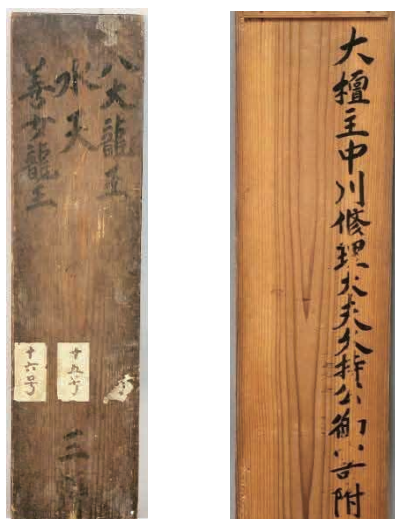 八大龍王
水天
善女龍王
三
廿五号
十六号
大檀主中川修理大夫久持公御寄附